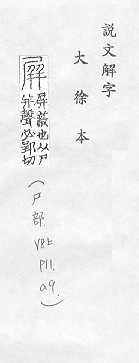 說文解字
大徐本
屏 屏蔽也从尸
并聲必郢切
(尸部. V8上 P11. a9.)